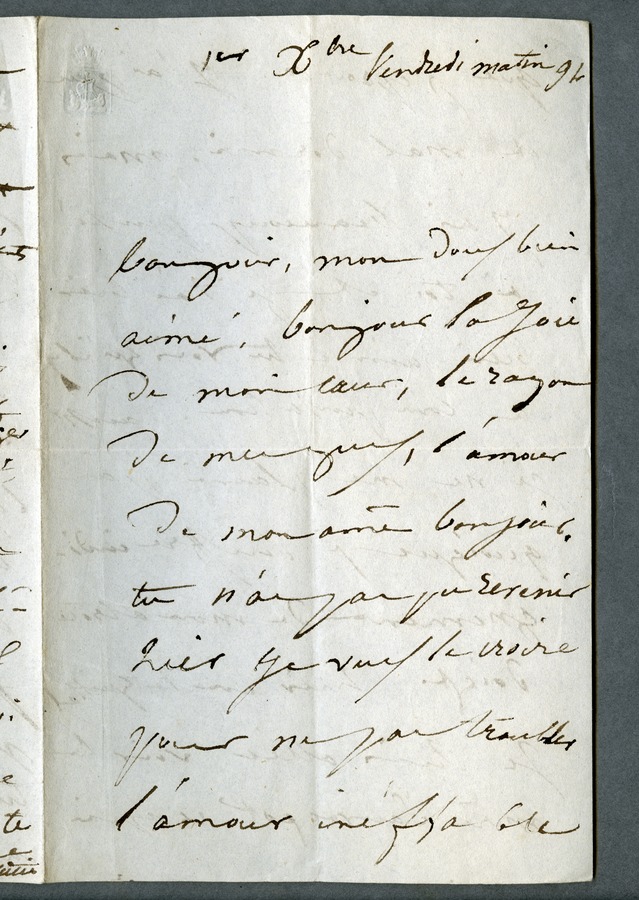 1er Xbre Vendredi matin 9h
bonjour, mon doux bien
aimé, bonjour la joie
de mon cœur, le rayon
de mes yeux, l'amour
de mon âme bonjour.
tu n'as pas pu revenir
hier je veux le croire
pour ne pas troubler
l'amour ineffable